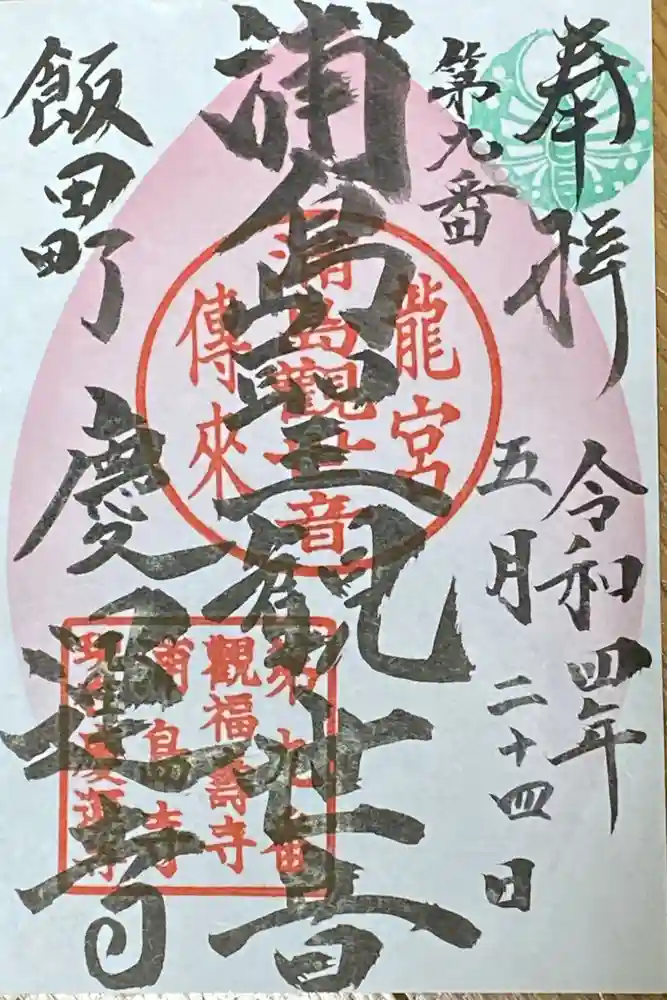 奉拝
令和四年
五月二十四日
第九番
浦島聖観世音
飯田町
慶運寺
龍宮
浦島觀世音
傳來
第九番
觀福壽寺
浦島寺
現在慶運寺